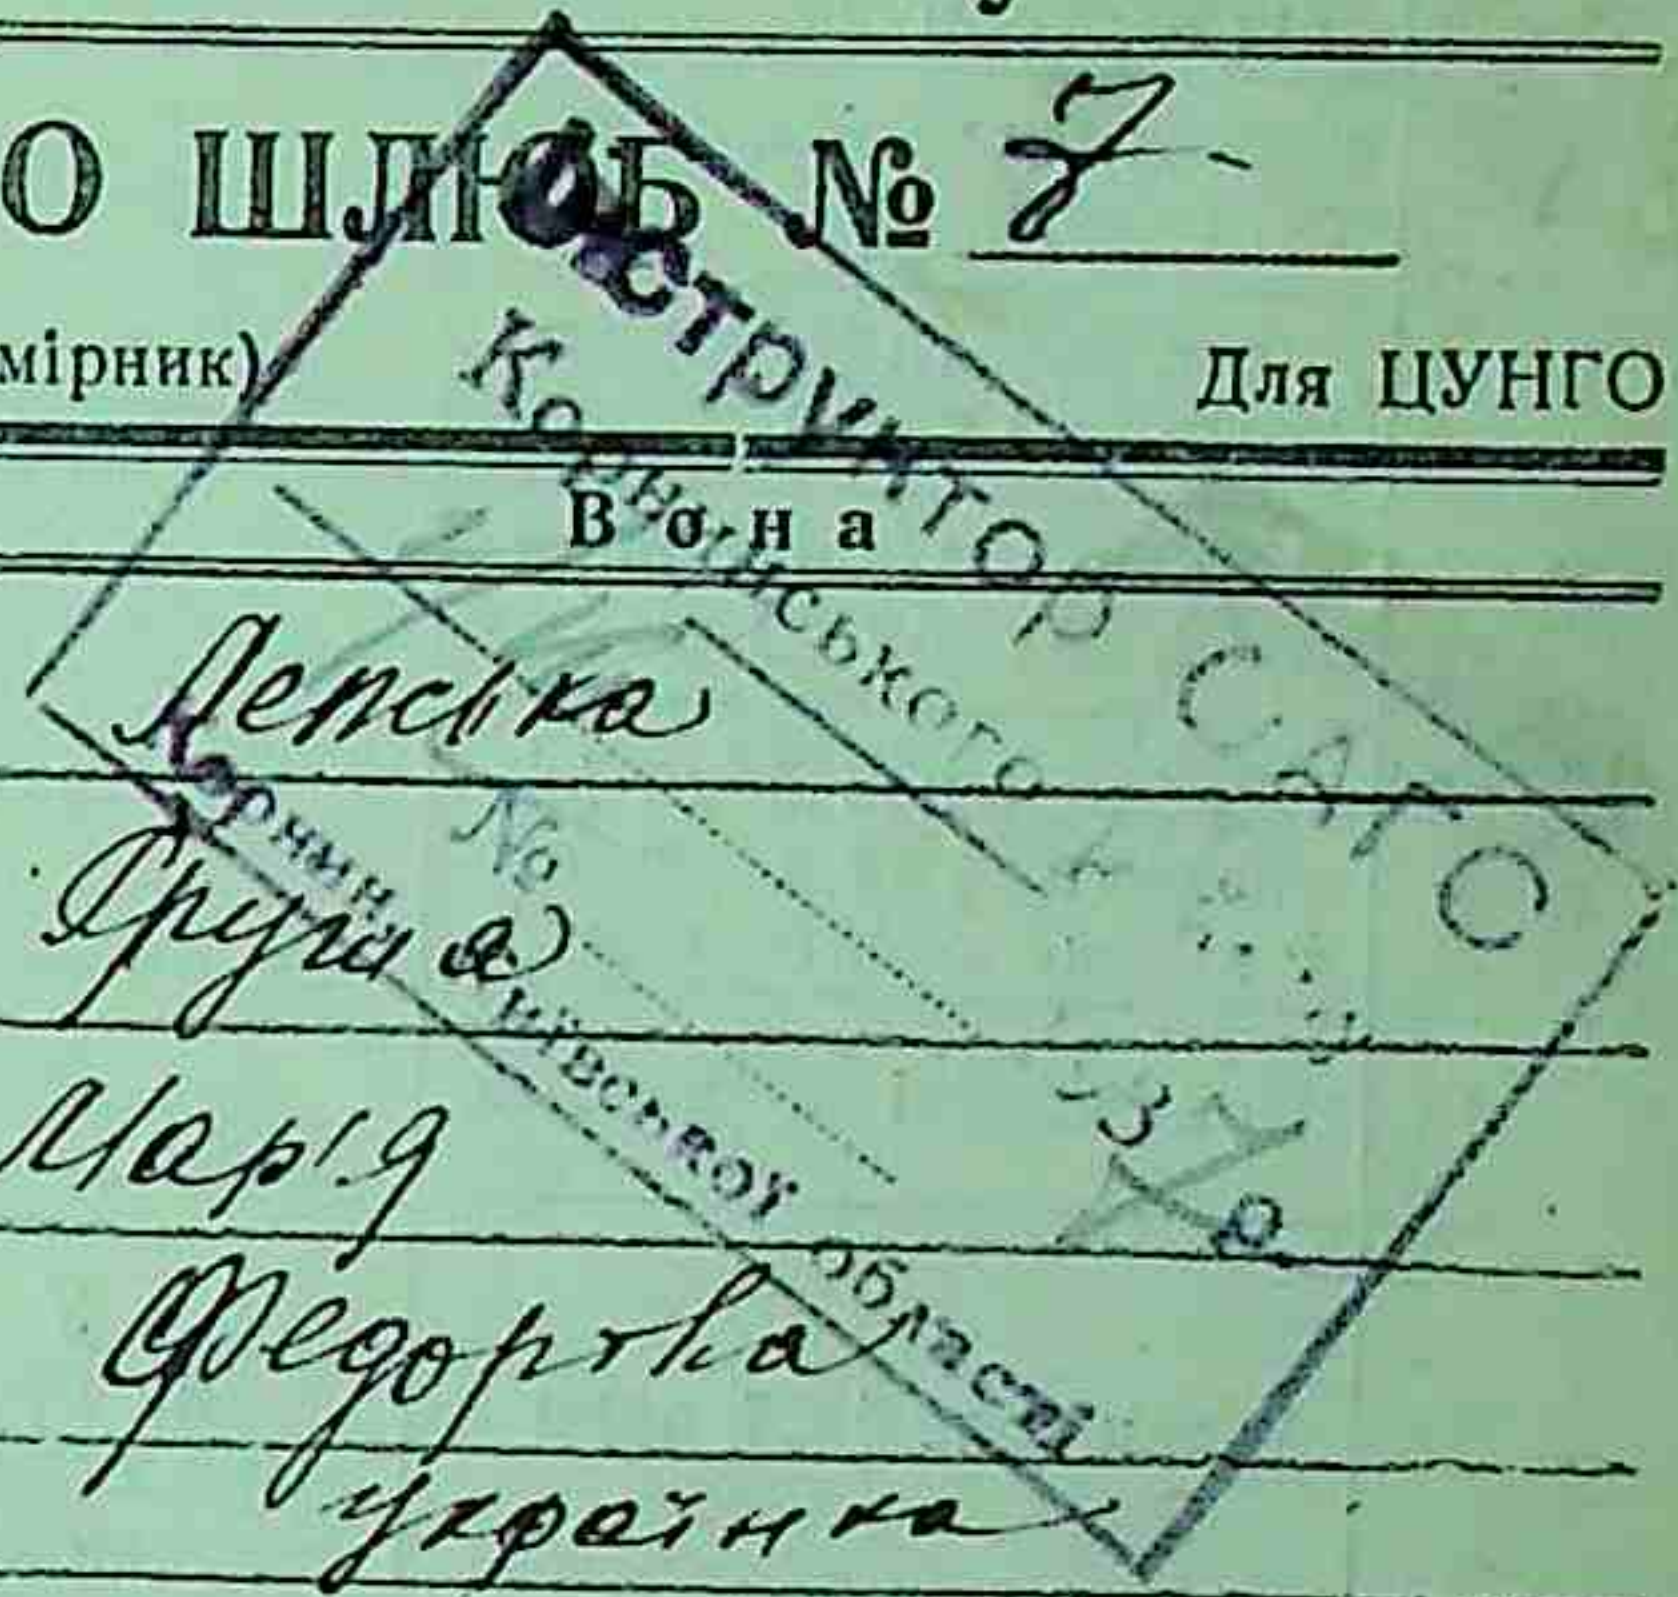 О ШЛЮБ № 7
мірник)
Для ЦУНГО
Вона
Лепська
Мар'я
Федорівна
українка
Інструктор САГС
Корнинського
№
Корнин, Київської області